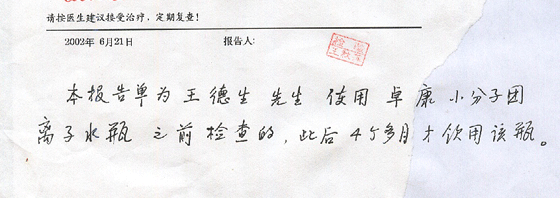 请按医生建议接受治疗，定期复查！
2002年 6月21日 报告人：
本报告单为王德生先生使用卓康小分子团
离子水瓶之前检查的，此后4个多月才饮用该瓶。